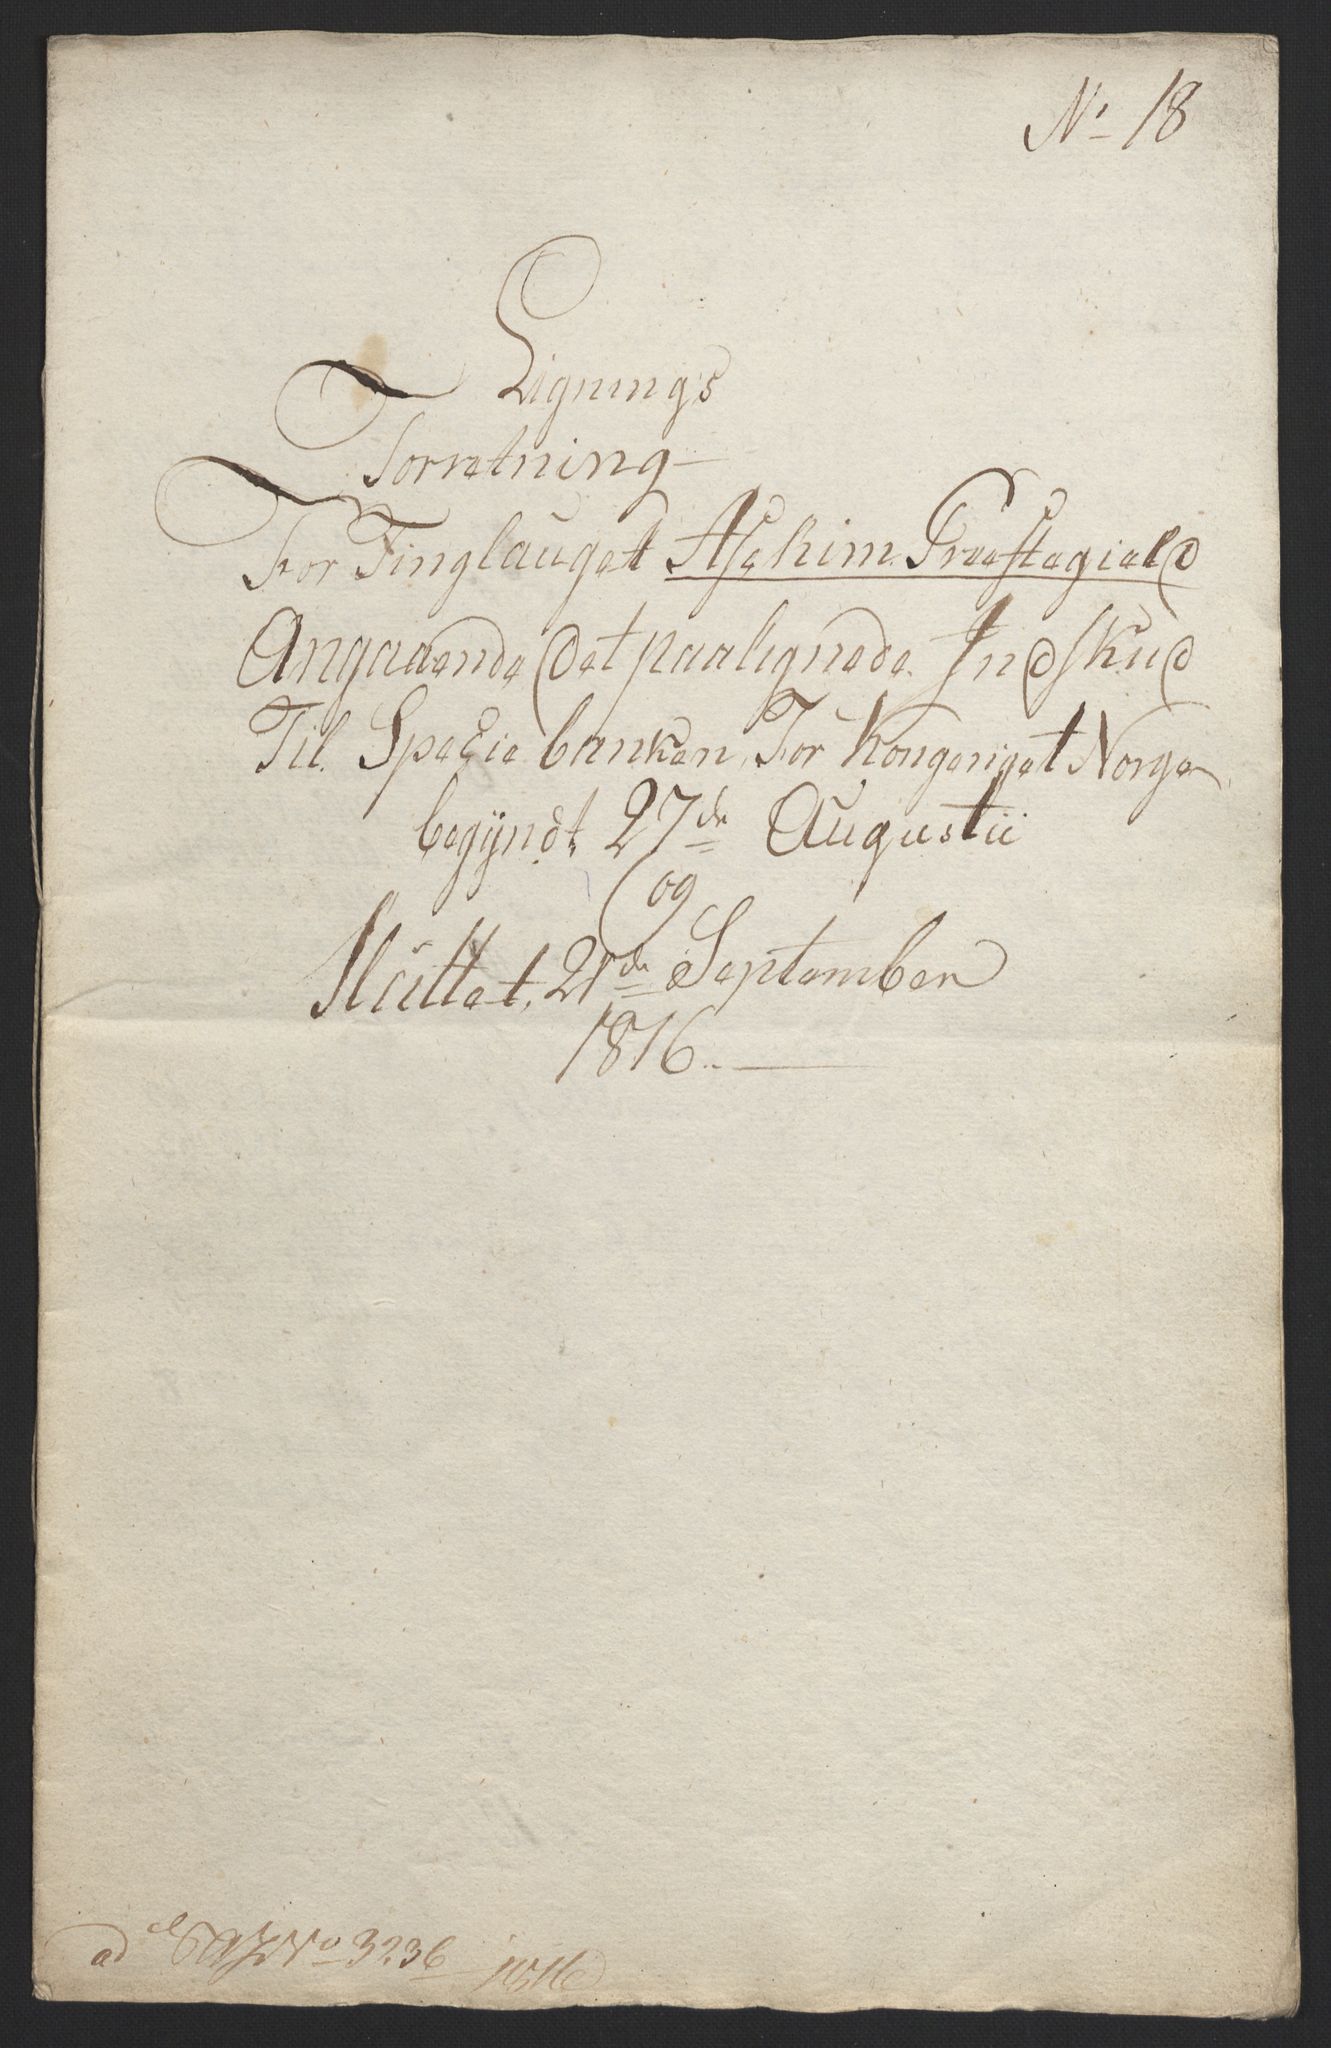 No 18
Lignings
Forretning
For Tinglauget Askim Præstegield
Angaaende det paalignede Indskud
Til Speciebanken For Kongeriget Norge
begyndt 27de Augustii
og
Sluttet, 21de September
1816.
ad No 3236 1816